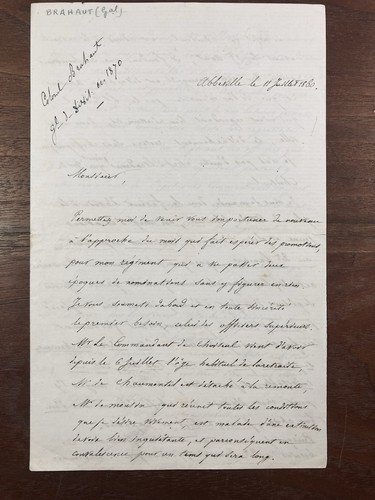 BRAHAUT (Gal)
Colonel Brahaut
Gal D. Divis. en 1870
Abbeville le 11 Juillet 1860.
Monsieur,
Permettez moi de venir vous importuner de nouveau
à l'approche du mois qui fait espérer des promotions,
pour mon régiment qui a vu passer deux
époques de nominations sans y figurer en rien
Je vous soumets d'abord et en toute sincérité
le premier besoin, celui des officiers supérieurs.
Mr. Le Commandant de Choiseul vient d'avoir
depuis le 6 Juillet l'âge habituel de la retraite,
Mr. de Chaumontel est détaché à la remonte,
Mr. de mouton qui réunit toutes les conditions
que je désire vivement est malade d'une extinction
de voix bien inquiétante, et par conséquent en
convalescence pour un tems qui sera long.